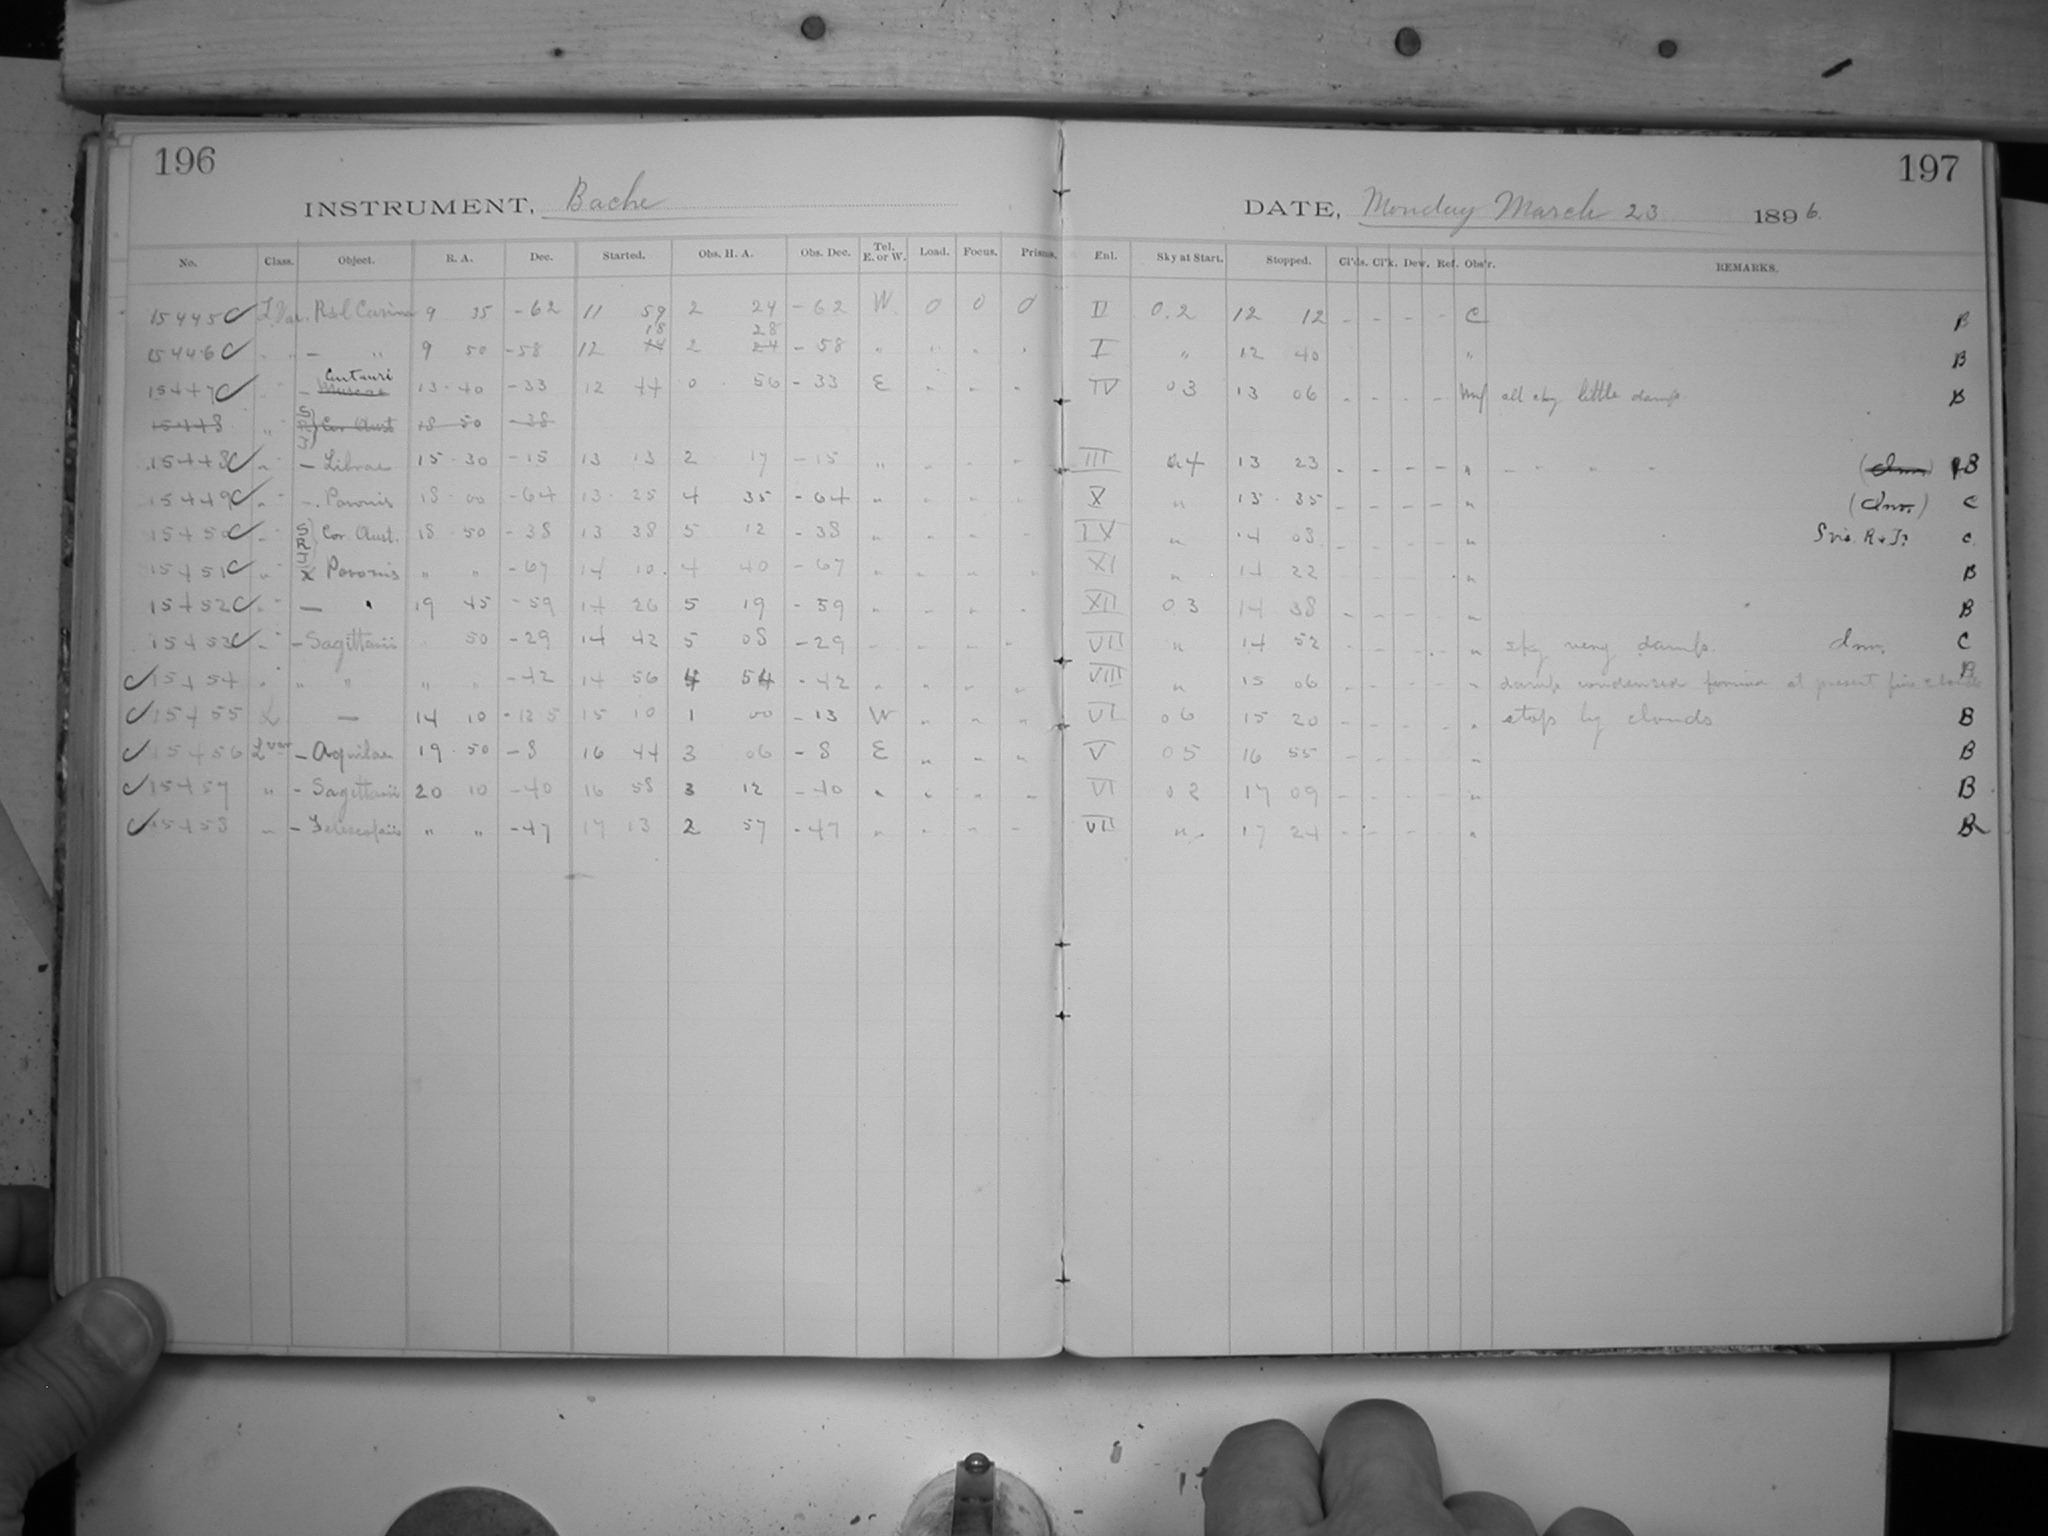 196
197
INSTRUMENT, Bache
DATE, Monday March 23 1896.
No. Class. Object. R. A. Dec. Started. Obs. H. A. Obs. Dec. Tel. E. or W. Load. Focus. Prisms. Enl. Sky at Start. Stopped. Cl'ds. Cl'k. Dew. Ref. Obs'r. REMARKS.
15445 C L Var. R&l Carinae 9 35 -62 11 59 2 24 -62 W. 0 0 0 II 0.2 12 12 - - - - C B
18 28
15446 C " " - " 9 50 -58 12 14 2 24 -58 " " " " I " 12 40 " B
Centauri
15447 C " - Muscae 13 40 -33 12 44 0 56 -33 E " " " IV 03 13 06 - - - - all sky little damp B
15448 " S R T } Cor Aust 18 50 -38
15448 C " " - Librae 15 30 -15 13 13 2 17 -15 " " " " III 04 13 23 - - - - " " " " " B
15449 C " " - Pavonis 18 00 -64 13 25 4 35 -64 " " " " X " 13 35 - - - - " C
15450 C " " S R T } Cor Aust. 18 50 -38 13 38 5 12 -38 " " " " IX " 14 08 - - " S vis. R & T? C
15451 C " " X Pavonis " " -67 14 10 4 40 -67 " " " " XI " 14 22 " B
15452 C " " - " 19 45 -59 14 26 5 19 -59 " " " " XII 03 14 38 - - - - " B
15453 C " " - Sagittarii " 50 -29 14 42 5 08 -29 " " " " VII " 14 52 - - - - " sky very damp. C
15454 " " " " " -42 14 56 4 54 -42 " " " " VIII " 15 06 - - - - " damp condensed at present fine clouds B
15455 L - 14 10 -12 5 15 10 1 00 -13 W " " " VI 06 15 20 - - - - " stop by clouds B
15456 L var - Aquilae 19 50 -8 16 44 3 06 -8 E " " " V 05 16 55 - - - " B
15457 " - Sagittarii 20 10 -40 16 58 3 12 -40 " " " " VI 02 17 09 - - - - " B
15458 " - Telescopii " " -47 17 13 2 57 -47 " " " " VII " 17 24 - - - - " B